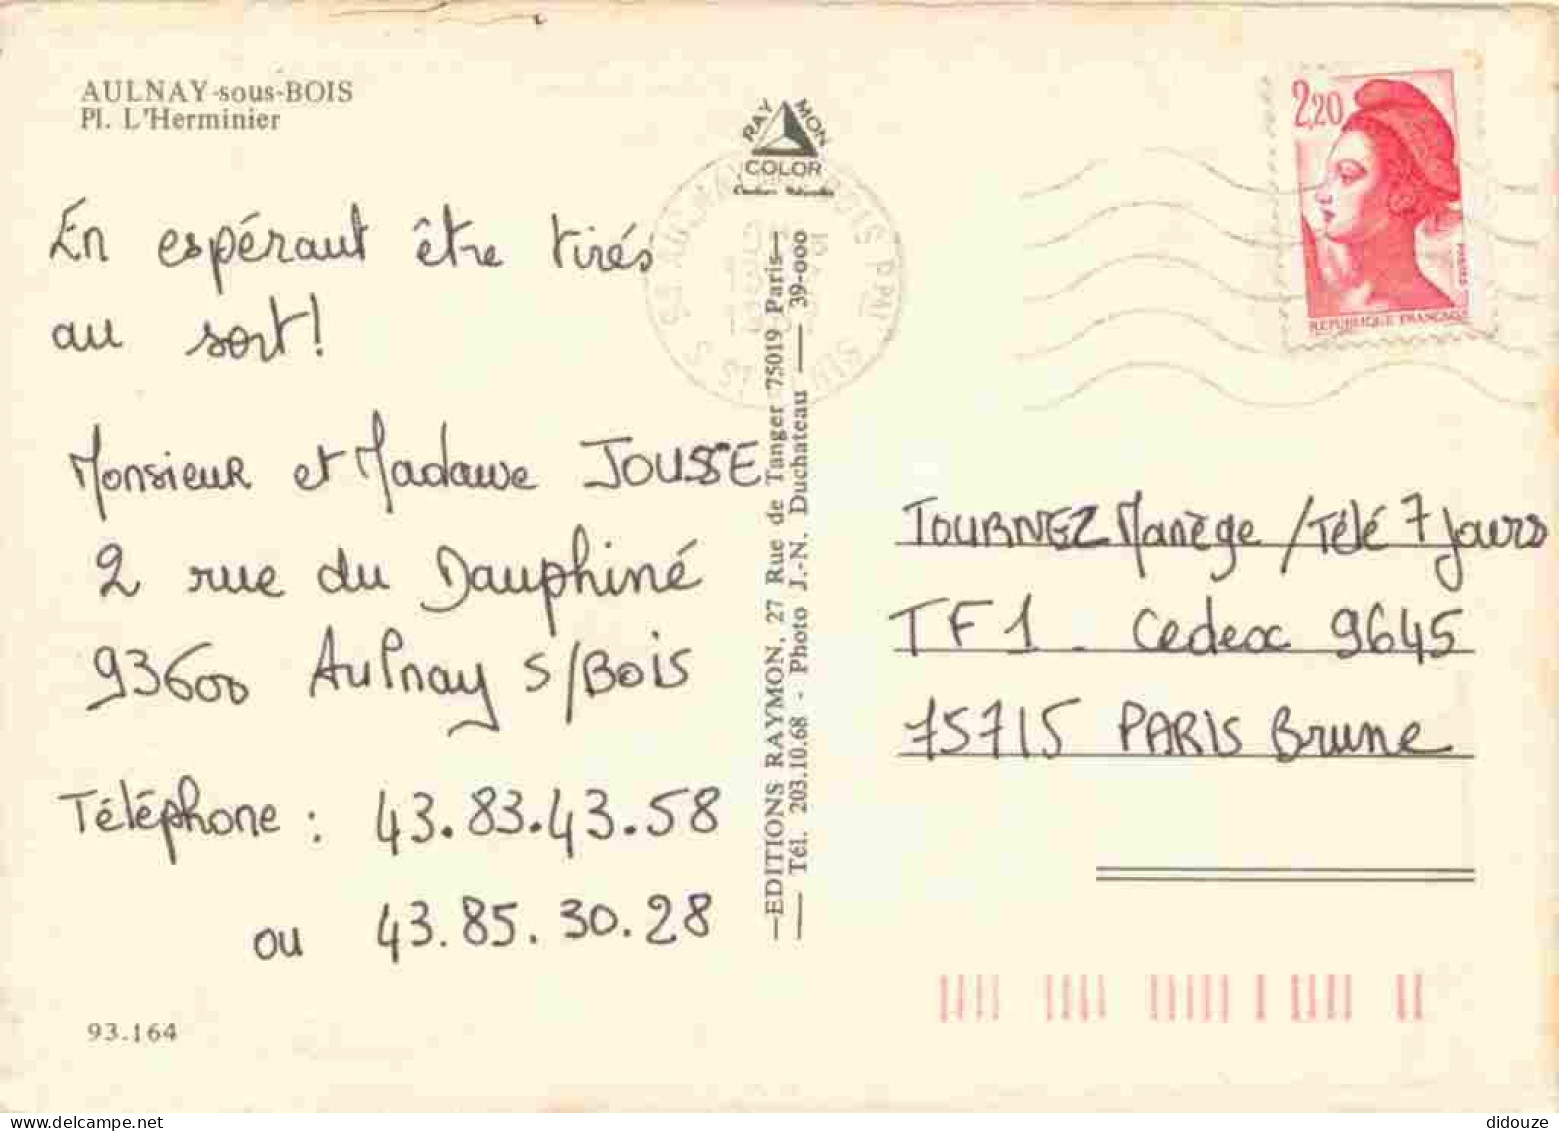 AULNAY-sous-BOIS
Pl. L'Herminier
En espéraut être tirés
au sort!
Monsieur et Madame JOUSSE
2 rue du Dauphiné
93600 Aulnay S/Bois
Téléphone : 43.83.43.58
ou 43.85.30.28
93.164
RAYMON
COLOR
EDITIONS RAYMON, 27 Rue de Tanger 75019 Paris
Tél. 203.10.68 - Photo J.-N. Duchateau — 39-000
2,20
REPUBLIQUE FRANÇAISE
TOURNEZ Manège / Télé 7 Jours
TF1 - Cedex 9645
75715 PARIS Brune
didouze